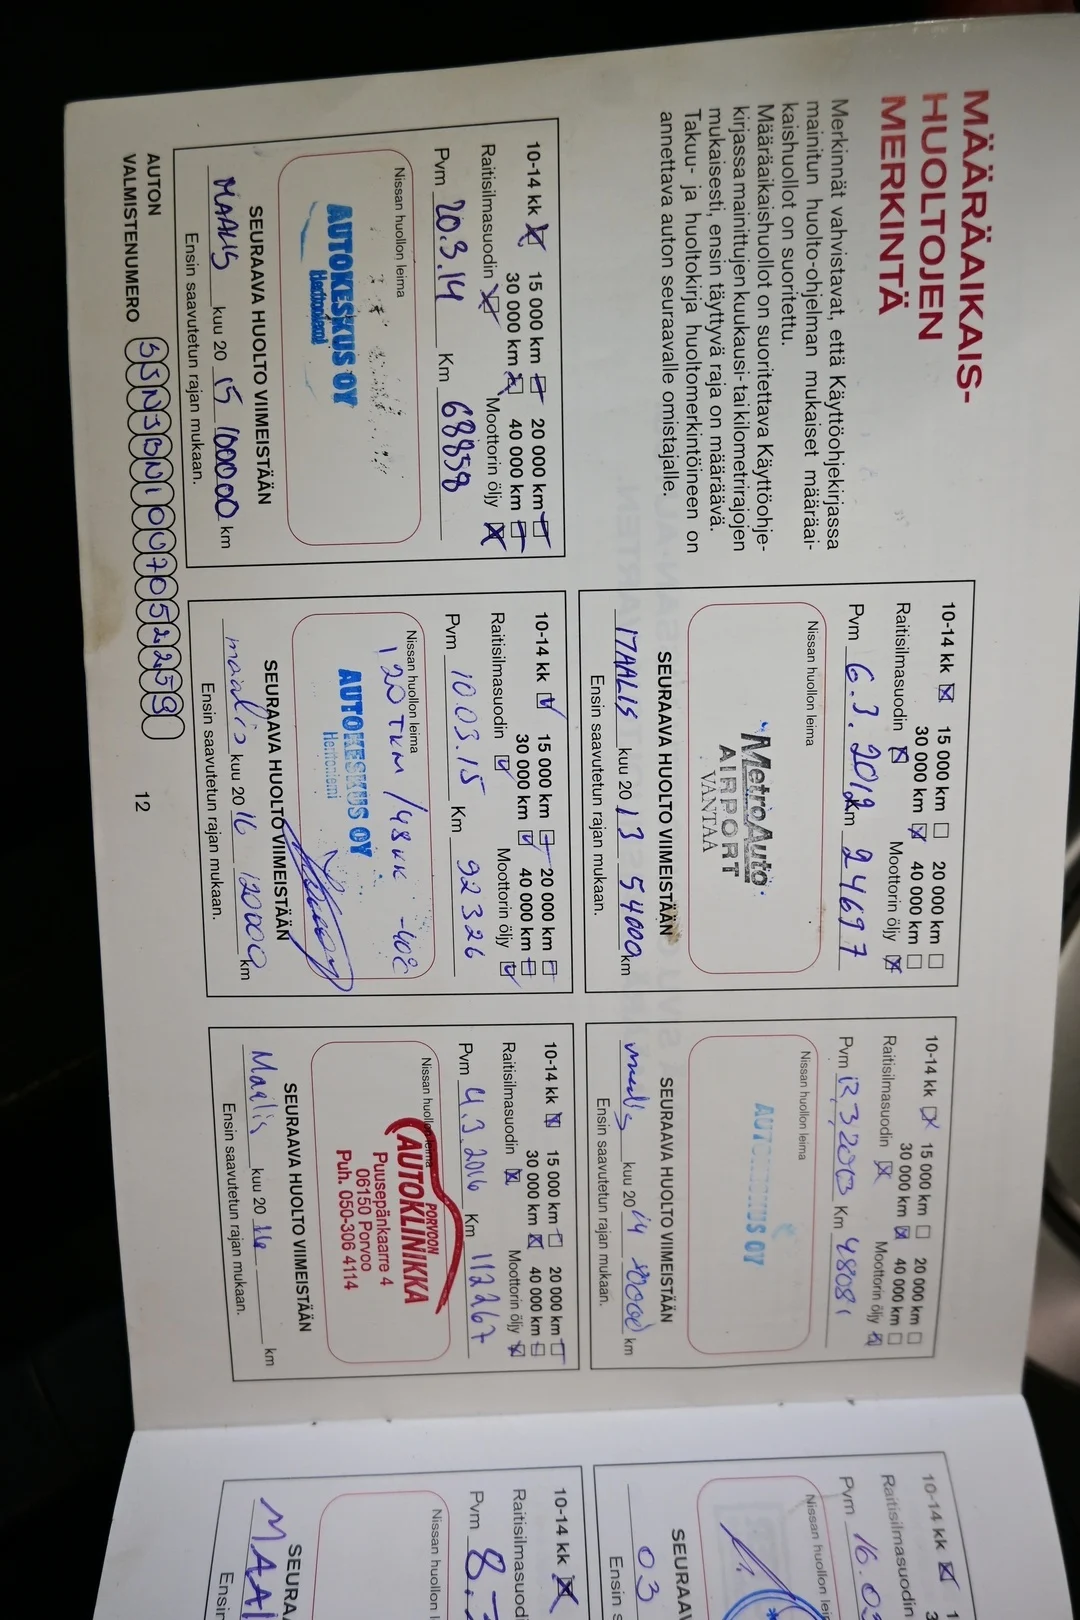 MÄÄRÄAIKAIS-
HUOLTOJEN
MERKINTÄ
Merkinnät vahvistavat, että Käyttöohjekirjassa
mainitun huolto-ohjelman mukaiset määräai-
kaishuollot on suoritettu.
Määräaikaishuollot on suoritettava Käyttöohje-
kirjassa mainittujen kuukausi- tai kilometrirajojen
mukaisesti, ensin täyttyvä raja on määräävä.
Takuu- ja huoltokirja huoltomerkintöineen on
annettava auton seuraavalle omistajalle.
10-14 kk 15 000 km 20 000 km
30 000 km 40 000 km
Raitisilmasuodin Moottorin öljy
Pvm 6.3.2012 Km 24697
Nissan huollon leima
MetroAuto
AIRPORT
VANTAA
SEURAAVA HUOLTO VIIMEISTÄÄN
MAALIS kuu 20 13 54000 km
Ensin saavutetun rajan mukaan.
10-14 kk 15 000 km 20 000 km
30 000 km 40 000 km
Raitisilmasuodin Moottorin öljy
Pvm 12.3.2013 Km 48081
Nissan huollon leima
AUTOKESKUS OY
SEURAAVA HUOLTO VIIMEISTÄÄN
maalis kuu 20 14 km
Ensin saavutetun rajan mukaan.
10-14 kk 15 000 km 20 000 km
30 000 km 40 000 km
Raitisilmasuodin Moottorin öljy
Pvm 20.3.14 Km 68858
Nissan huollon leima
AUTOKESKUS OY
Herttoniemi
SEURAAVA HUOLTO VIIMEISTÄÄN
MAALIS kuu 20 15 100000 km
Ensin saavutetun rajan mukaan.
10-14 kk 15 000 km 20 000 km
30 000 km 40 000 km
Raitisilmasuodin Moottorin öljy
Pvm 10.03.15 Km 92326
Nissan huollon leima
120 TKM / 48KK -40€
AUTOKESKUS OY
Herttoniemi
SEURAAVA HUOLTO VIIMEISTÄÄN
maalis kuu 20 16 120000 km
Ensin saavutetun rajan mukaan.
10-14 kk 15 000 km 20 000 km
30 000 km 40 000 km
Raitisilmasuodin Moottorin öljy
Pvm 4.3.2016 Km 112267
Nissan huollon leima
PORVOON
AUTOKLINIKKA
Puusepänkaarre 4
06150 Porvoo
Puh. 050-306 4114
SEURAAVA HUOLTO VIIMEISTÄÄN
Maalis kuu 20 16 km
Ensin saavutetun rajan mukaan.
AUTON
VALMISTENUMERO SJN3BN10U7052259
12
10-14 kk
Raitisilmasuodin
Pvm 16.03
Nissan huollon lei
SEURAAV
03
Ensin s
10-14 kk
Raitisilmasuodi
Pvm 8.
Nissan huollon l
SEURA
MAAL
Ensin